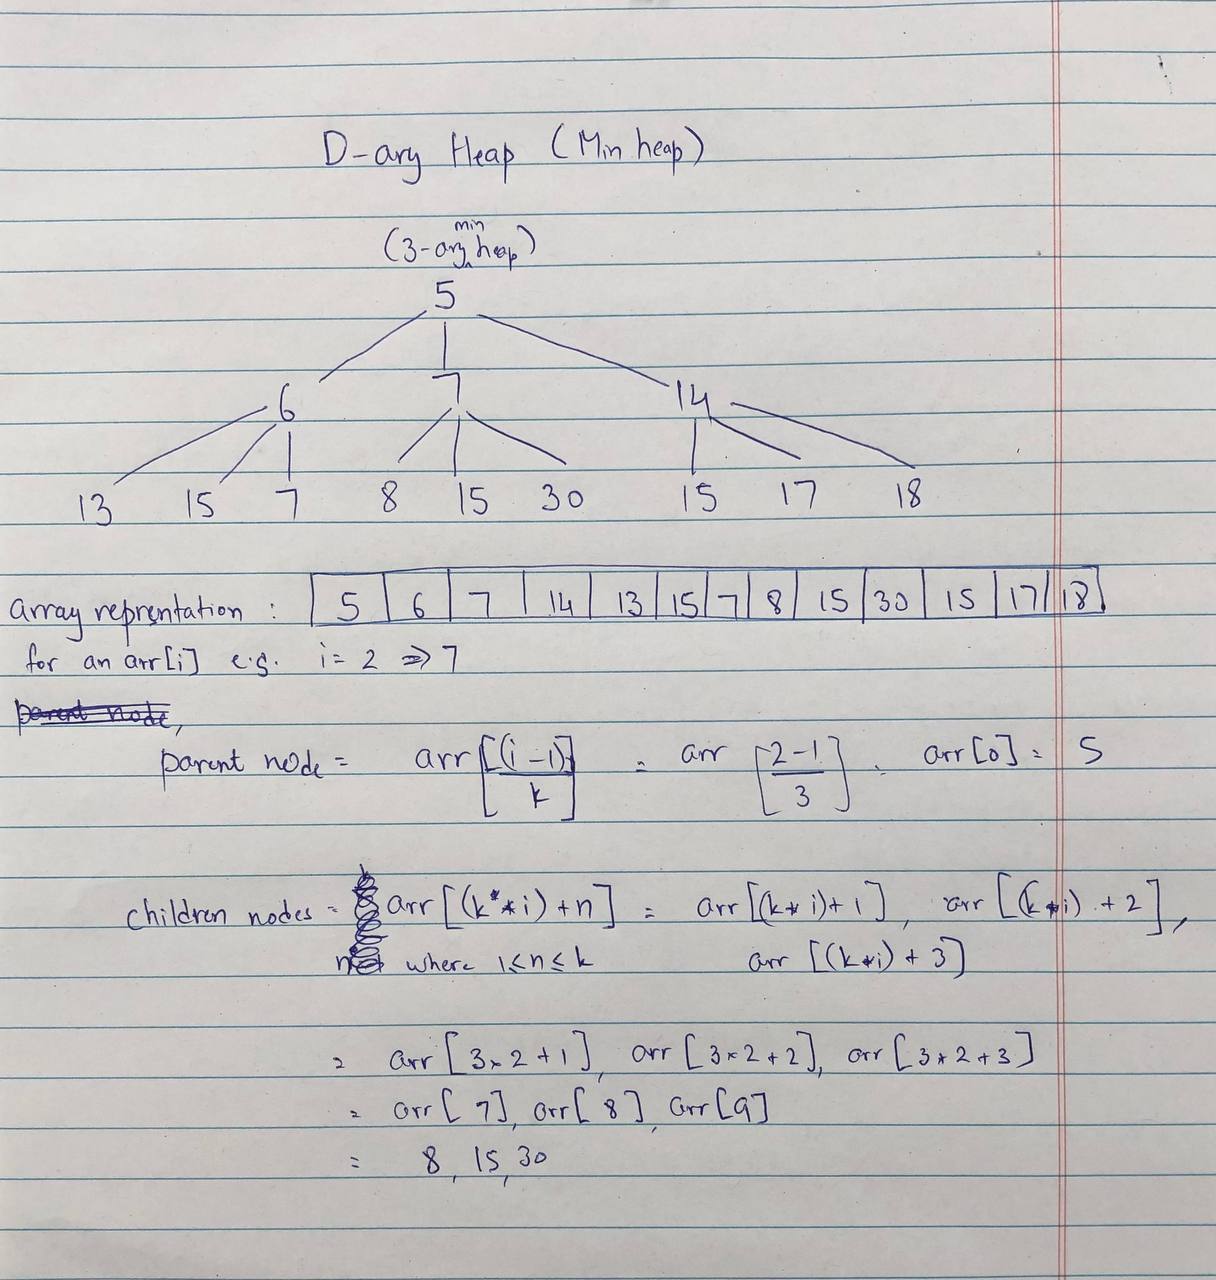 D-ary Heap (Min heap)
min
(3-ary heap)
5
6 7 14
13 15 7 8 15 30 15 17 18
array reprentation : 5 6 7 14 13 15 7 8 15 30 15 17 18
for an arr[i] e.g. i = 2 => 7
parent node,
parent node = arr[(i-1)/k] = arr[2-1/3] = arr[0] = 5
children nodes = arr[(k*i)+n] = arr[(k*i)+1], arr[(k*i)+2],
where 1≤n≤k arr[(k*i)+3]
= arr[3*2+1], arr[3*2+2], arr[3*2+3]
= arr[7], arr[8], arr[9]
= 8, 15, 30